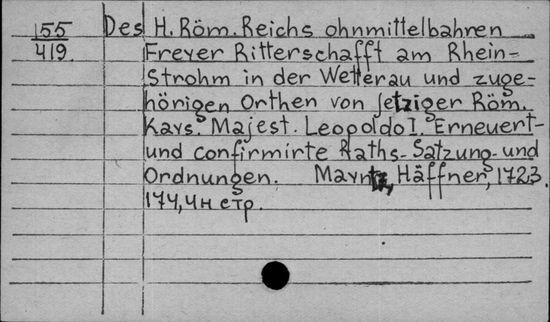 155 Des H. Röm. Reichs ohnmittelbahren
419. Freyer Ritterschafft am Rhein-
Strohm in der Wetterau und zuge-
hörigen Orthen von jetziger Röm.
Kays. Majest. Leopoldo I. Erneuert-
und confirmirte Raths-Satzung- und
Ordnungen. Mayntz, Häffner, 1723.
174, 4 н стр.